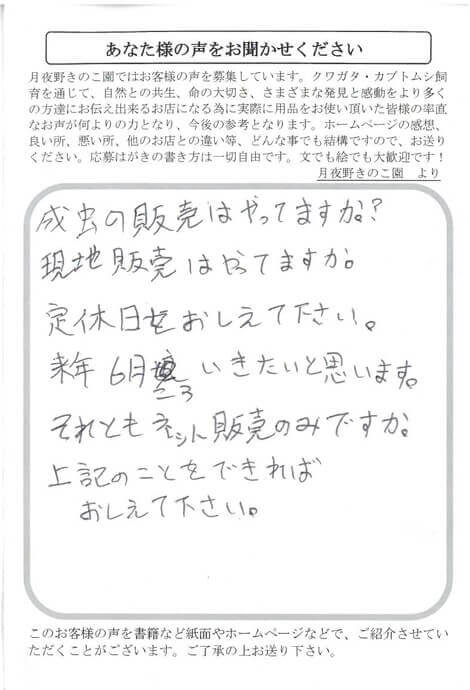 あなた様の声をお聞かせください
月夜野きのこ園ではお客様の声を募集しています。クワガタ・カブトムシ飼
育を通じて、自然との共生、命の大切さ、さまざまな発見と感動をより多く
の方達にお伝え出来るお店になる為に実際に用品をお使い頂いた皆様の率直
なお声が何よりの力となり、今後の参考となります。ホームページの感想、
良い所、悪い所、他のお店との違い等、どんな事でも結構ですので、お送り
ください。応募はがきの書き方は一切自由です。文でも絵でも大歓迎です！
月夜野きのこ園 より
成虫の販売はやってますか？
現地販売はやってますか。
定休日をおしえて下さい。
来年6月ころいきたいと思います。
それともネット販売のみですか。
上記のことをできれば
おしえて下さい。
このお客様の声を書籍など紙面やホームページなどで、ご紹介させてい
ただくことがございます。ご了承の上お送り下さい。